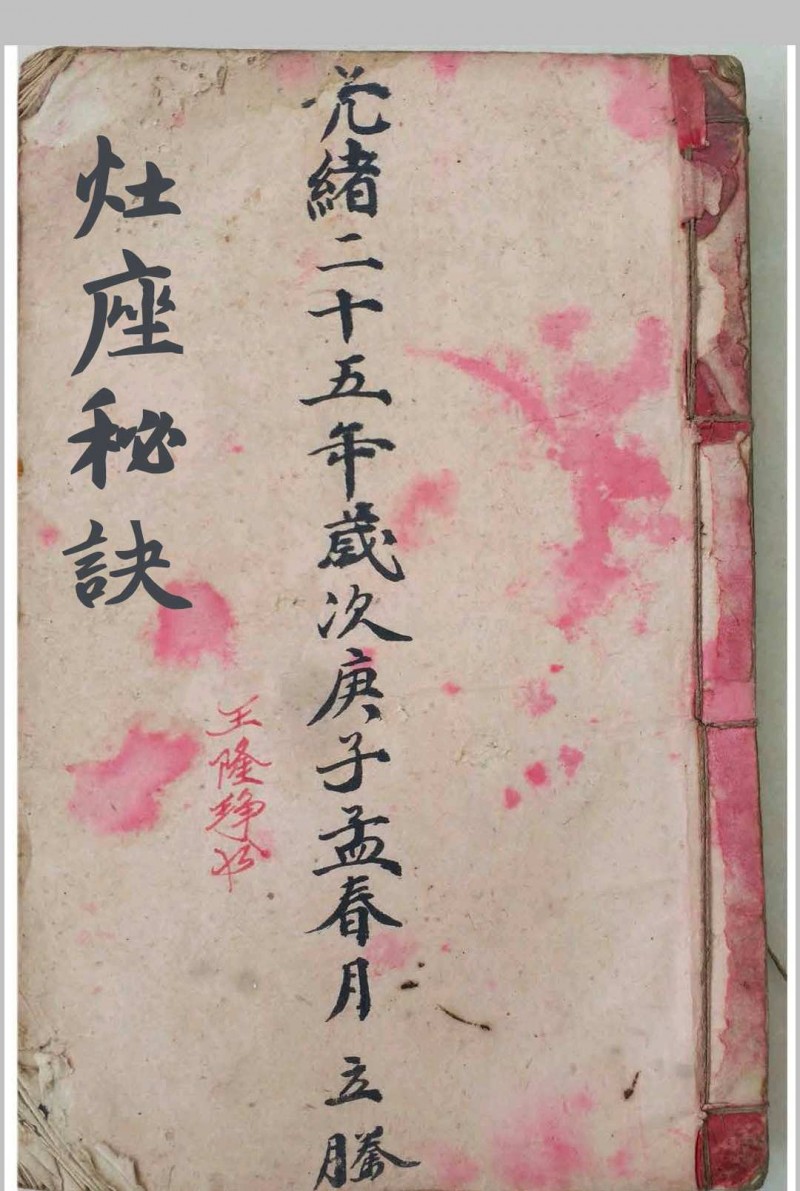 光緒二十五年歲次庚子孟春月 立
王隆
灶座秘訣